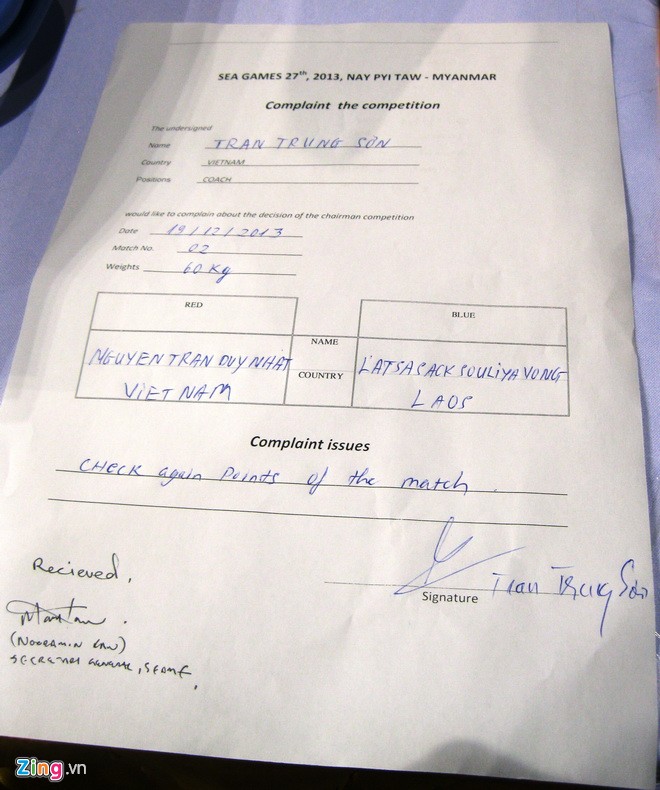 SEA GAMES 27th, 2013, NAY PYI TAW - MYANMAR
Complaint the competition
The undersigned
Name TRAN TRUNG SƠN
Country VIETNAM
Positions COACH
would like to complain about the decision of the chairman competition
Date 19/12/2013
Match No. 02
Weights 60 Kg
RED BLUE
NAME
NGUYEN TRAN DUY NHAT LATSASACK SOULIYAVONG
COUNTRY
VIET NAM LAOS
Complaint issues
CHECK again Points of the match.
Recieved,
Tran Trung Sơn
Signature
(NOORAMIN
SECRETARY GENERAL,
Zing.vn